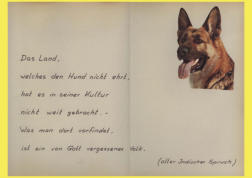 Das Land,
welches den Hund nicht ehrt,
hat es in seiner Kultur
nicht weit gebracht. -
Was man dort vorfindet,
ist ein von Gott vergessenes Volk.
(alter Indischer Spruch)